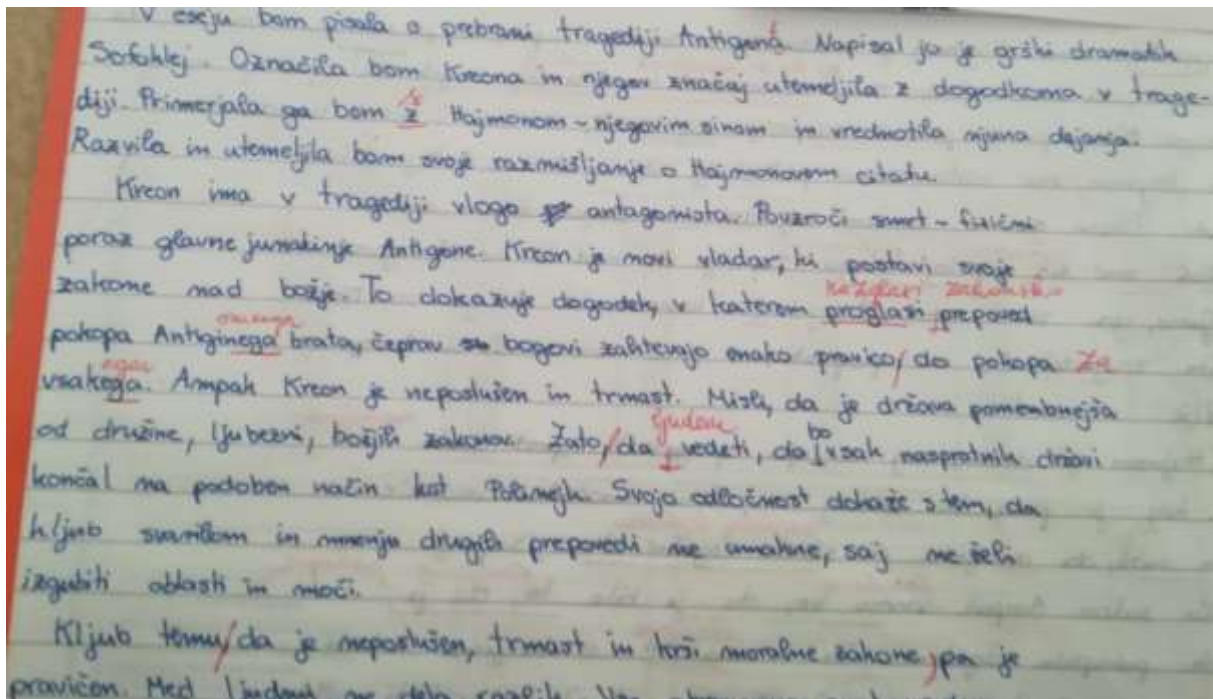 V eseju bom pisala o prebrani tragediji Antigona. Napisal jo je grški dramatik
Sofoklej. Označila bom Kreona in njegov značaj utemeljila z dogodkoma v trage-
diji. Primerjala ga bom z s Hajmonom - njegovim sinom in vrednotila njuna dejanja.
Razvila in utemeljila bom svoje razmišljanje o Hajmonovem citatu.
Kreon ima v tragediji vlogo antagonista. Povzroči smrt - fizični
poraz glavne junakinje Antigone. Kreon je novi vladar, ki postavi svoje
zakone nad božje. To dokazuje dogodek, v katerem proglasi prepoved
pokopa Antiginega brata, čeprav bogovi zahtevajo enako pravico do pokopa za
vsakega. Ampak Kreon je neposlušen in trmast. Misli, da je država pomembnejša
ljudem
od družine, ljubezni, božjih zakonov. Zato, da vedeti, da bo vsak nasprotnik državi
končal na podoben način kot Polinejk. Svojo odločnost dokaže s tem, da
kljub svarilom in mnenju drugih prepovedi ne umakne, saj ne želi
izgubiti oblasti in moči.
Kljub temu da je neposlušen, trmast in krši moralne zakone, pa je
pravičen. Med ljudmi ne dela razlik.